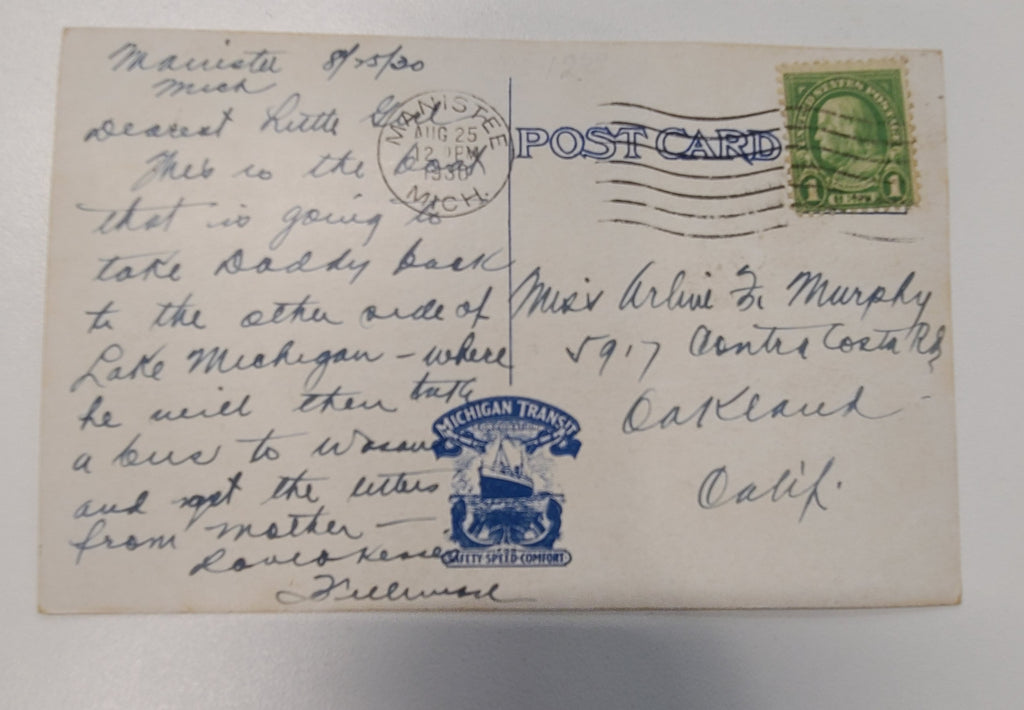 Manistee 8/25/30
Mich
Dearest Little Girl
This is the boat
that is going to
take Daddy back
to the other side of
Lake Michigan - where
he will then take
a bus to Wausau
and get the letters
from Mother -
Love & Kisses
MANISTEE
AUG 25
12 PM
1930
MICH.
POST CARD
1 1
Miss Arline F. Murphy
5917 Contra Costa Rd
Oakland -
Calif.
MICHIGAN TRANSIT
CORPORATION
SAFETY-SPEED-COMFORT